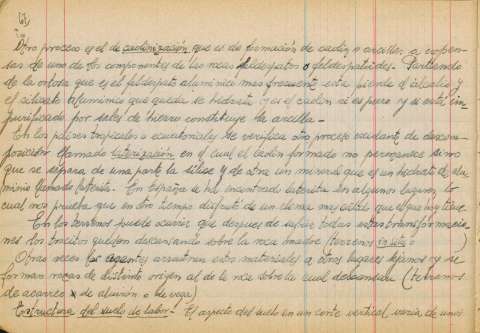 Otro proceso es el de caolinización que es de formación de caolin o arcillas a expen-
sas de uno de los componentes de las rocas feldespatos o feldespatoides. Partiendo
de la ortosa que es el feldespato alumínico mas frecuente esta pierde el alcalis y
el silicato aluminico que queda se hidrata y es el caolin si es puro y si está im-
purificado por sales de hierro constituye la arcilla.-
En los paises tropicales o ecuatoriales se verifica otro proceso de descom-
posición llamado laterización en el cual el caolin formado no permanece sino
que se separa de una parte la silice y de otra un mineral que es un hidrato de alu-
minio llamado laterita. En España se ha encontrado laterita en algunos lugares lo
cual nos prueba que en otro tiempo disfrutó de un clima mas cálido que el que hoy tiene.
En los terrenos puede ocurrir que despues de sufrir todas estas transformacio-
nes los trocitos queden descansando sobre la roca madre (terrenos in situ)
Otras veces los agentes arrastran estos materiales a otros lugares lejanos y se
forman rocas de distinto origen al de la roca sobre la cual descansan (terrenos
de acarreo de aluvión o de vega)
Estructura del suelo de labor.- El aspecto del suelo en un corte vertical varia de unos